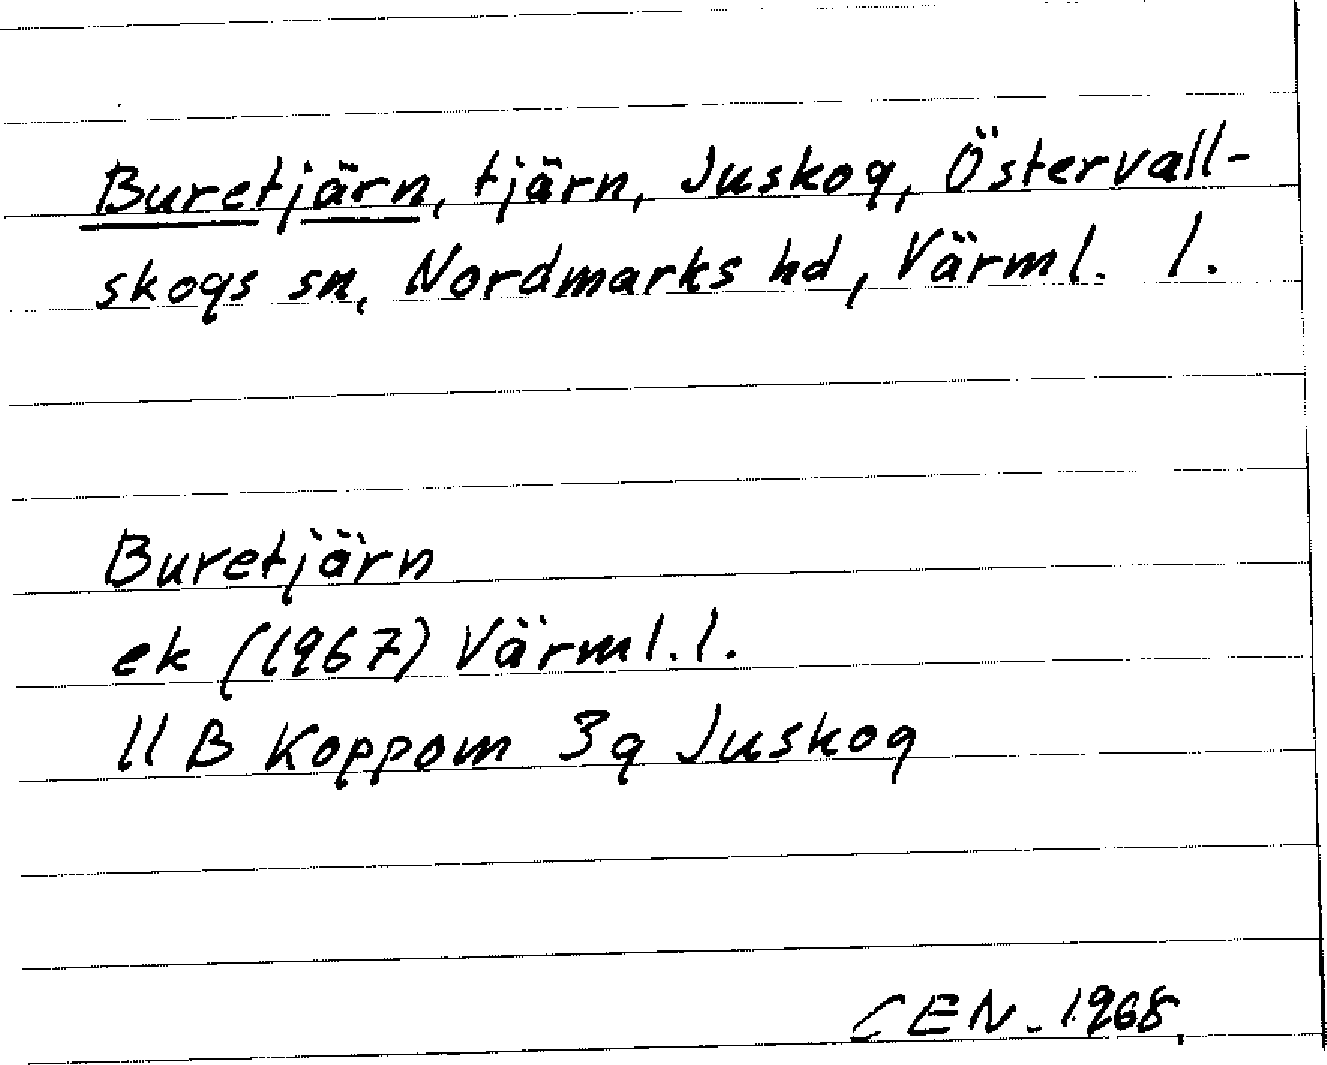 Buretjärn, tjärn, Juskog, Östervall-
skogs sn, Nordmarks hd, Värml. l.
Buretjärn
ek (1967) Värml. l.
11 B Koppom 3g Juskog
CEN. 1968.